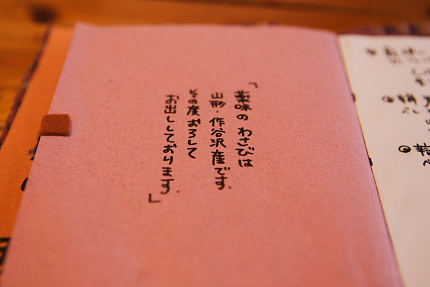 「薬味の わさびは
山形・作谷沢産です。
その度おろして
お出ししております。」